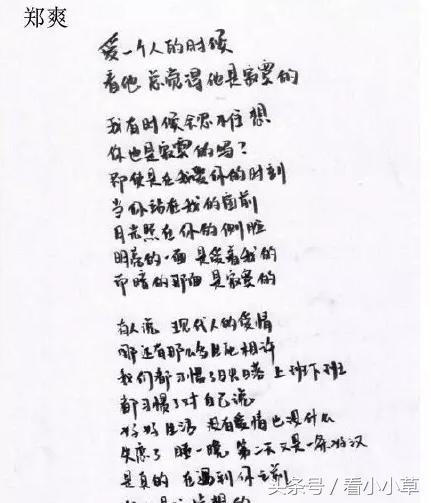 郑爽
爱一个人的时候
看他总觉得他是寂寞的
我有时候会忍不住想
你也是寂寞的吗?
即使是在我爱你的时刻
当你站在我的窗前
月光照在你的侧脸
明亮的一面是爱着我的
而暗的那面是寂寞的
有人说 现代人的爱情
哪还有那么多生死相许
我们都习惯了日出日落 上班下班
都习惯了对自己说
好好生活 没有爱情也没什么
失恋了 睡一晚 第二天又是一条好汉
是真的 在遇到你之前
头条号 / 看小小草